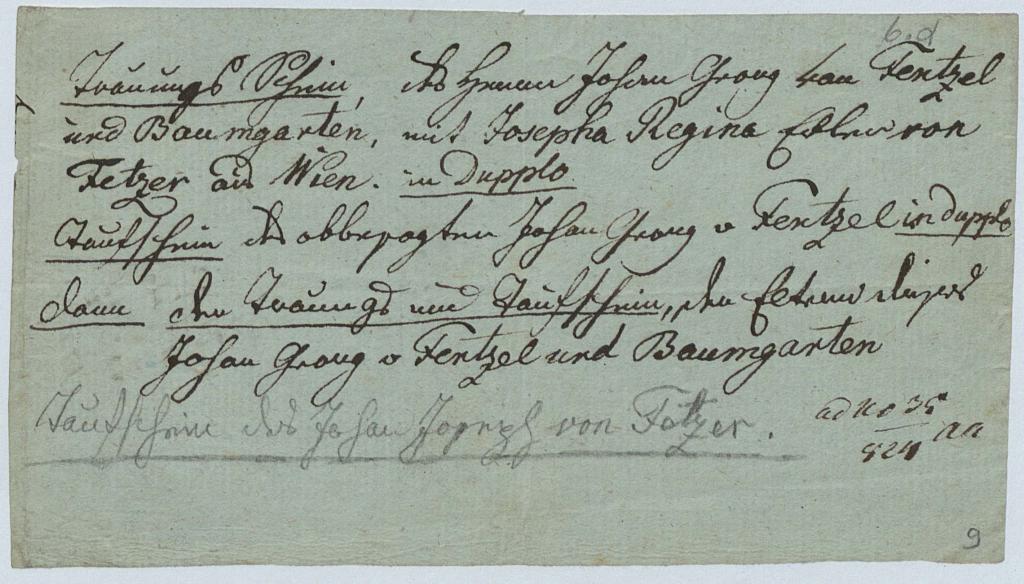 6. d
Trauungs Schein, des Herrn Johan Georg van Fentzel
und Baumgarten, mit Josepha Regina Edlen von
Fetzer aus Wien. in Dupplo
Taufschein des obbesagten Johan Georg v Fentzel in dupplo
dann den Trauungs und Taufschein, der Eltern dieses
Johan Georg v Fentzel und Baumgarten
Taufschein des Johan Joseph von Fetzer.
ad No 35
aa
9